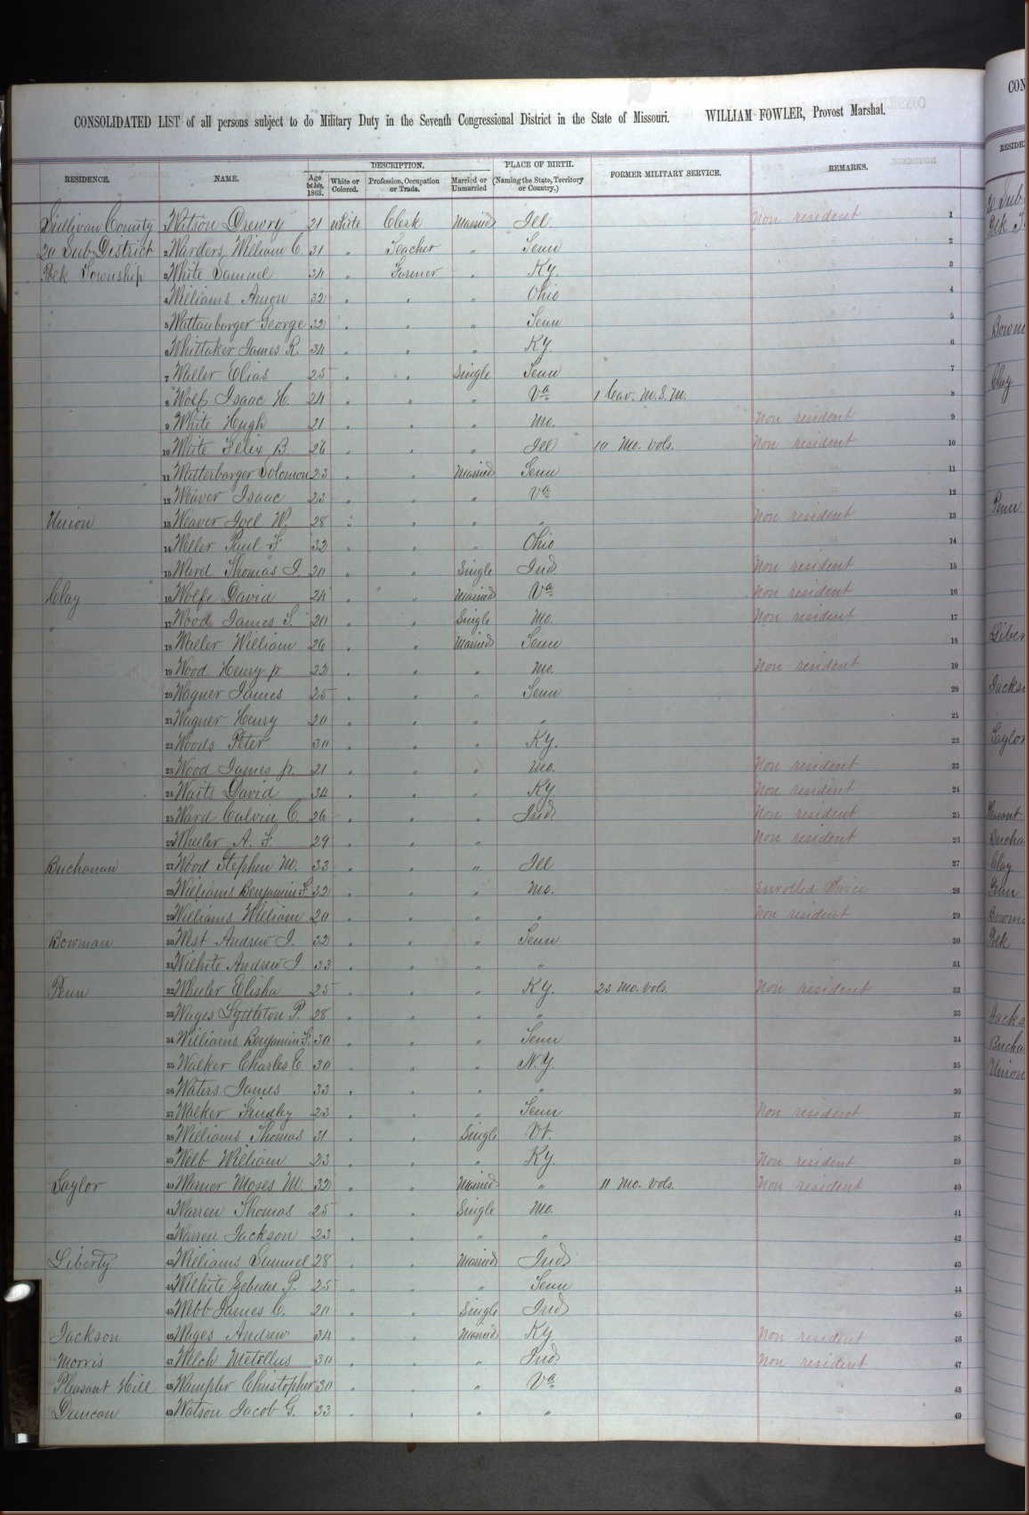 CONSOLIDATED LIST of all persons subject to do Military Duty in the Seventh Congressional District in the State of Missouri. WILLIAM FOWLER, Provost Marshal.
DESCRIPTION. PLACE OF BIRTH.
RESIDENCE. NAME. Age 1st July, 1863. White or Colored. Profession, Occupation or Trade. Married or Unmarried (Naming the State, Territory or Country.) FORMER MILITARY SERVICE. REMARKS.
Sullivan County Watson Drewry 21 White Clerk Married Ill. Non resident 1
20 Sub District 2 Warders William C. 31 " Teacher " Tenn 2
Polk Township 3 White Samuel 34 " Farmer " Ky. 3
4 Williams Amon 32 " " " Ohio 4
5 Wattenbarger George 32 " " " Tenn 5
6 Whittaker James R. 34 " " " Ky. 6
7 Waller Elias 25 " " Single Tenn 7
8 Wolf Isaac H. 24 " " " Va 1 Cav. M.S.M. 8
9 White Hugh 21 " " " Mo. Non resident 9
10 White Felix B. 26 " " " Ill 10 Mo. Vols. Non resident 10
11 Wattenbarger Solomon 23 " " Married Tenn 11
12 Weaver Isaac 23 " " " Va 12
Union 13 Weaver Joel W. 28 " " " " Non resident 13
14 Weller Paul F 32 " " " Ohio 14
15 Ward Thomas J. 20 " " Single Ind Non resident 15
Clay 16 Wolfe David 24 " " Married Va Non resident 16
" 17 Wood James S. 20 " " Single Mo. Non resident 17
18 Waller William 26 " " Married Tenn 18
19 Wood Henry jr 22 " " " Mo. Non resident 19
20 Wagner James 25 " " " Tenn 20
21 Wagner Henry 20 " " " " 21
22 Woods Peter 30 " " " Ky. 22
23 Wood James jr. 21 " " " Mo. Non resident 23
24 Waits David 34 " " " Ky Non resident 24
25 Ward Calvin C. 26 " " " Ind Non resident 25
26 Wheeler A. F. 29 " " " Non resident 26
Buchanan 27 Wood Stephen M. 33 " " " Ill 27
28 Williams Benjamin F. 32 " " " Mo. Enrolled Twice 28
29 Williams William 20 " " " " Non resident 29
Bowman 30 West Andrew J. 32 " " " Tenn 30
31 Wilhite Andrew J 33 " " " " 31
Penn 32 Wheeler Elisha 25 " " " Ky. 23 Mo. Vols. Non resident 32
33 Wages Lyttleton P. 28 " " " " 33
34 Williams Benjamin F. 30 " " " Tenn 34
35 Walker Charles E. 30 " " " N.Y. 35
36 Waters James 33 " " " " 36
37 Walker Lindley 23 " " " Tenn Non resident 37
38 Williams Thomas 31 " " Single Vt. 38
39 Webb William 23 " " " Ky. Non resident 39
Taylor 40 Warner Moses M. 32 " " Married " 11 Mo. Vols. Non resident 40
41 Warren Thomas 25 " " Single Mo. 41
42 Warren Jackson 23 " " " " 42
Liberty 43 Williams Samuel 28 " " Married Ind 43
44 Wilhite Zebedee P. 25 " " " Tenn 44
45 Webb James C. 20 " " Single Ind 45
Jackson 46 Wages Andrew 34 " " Married Ky Non resident 46
Morris 47 Welch Metellus 30 " " " Ind Non resident 47
Pleasant Hill 48 Wampler Christopher 30 " " " Va 48
Duncan 49 Watson Jacob G. 33 " " " " 49